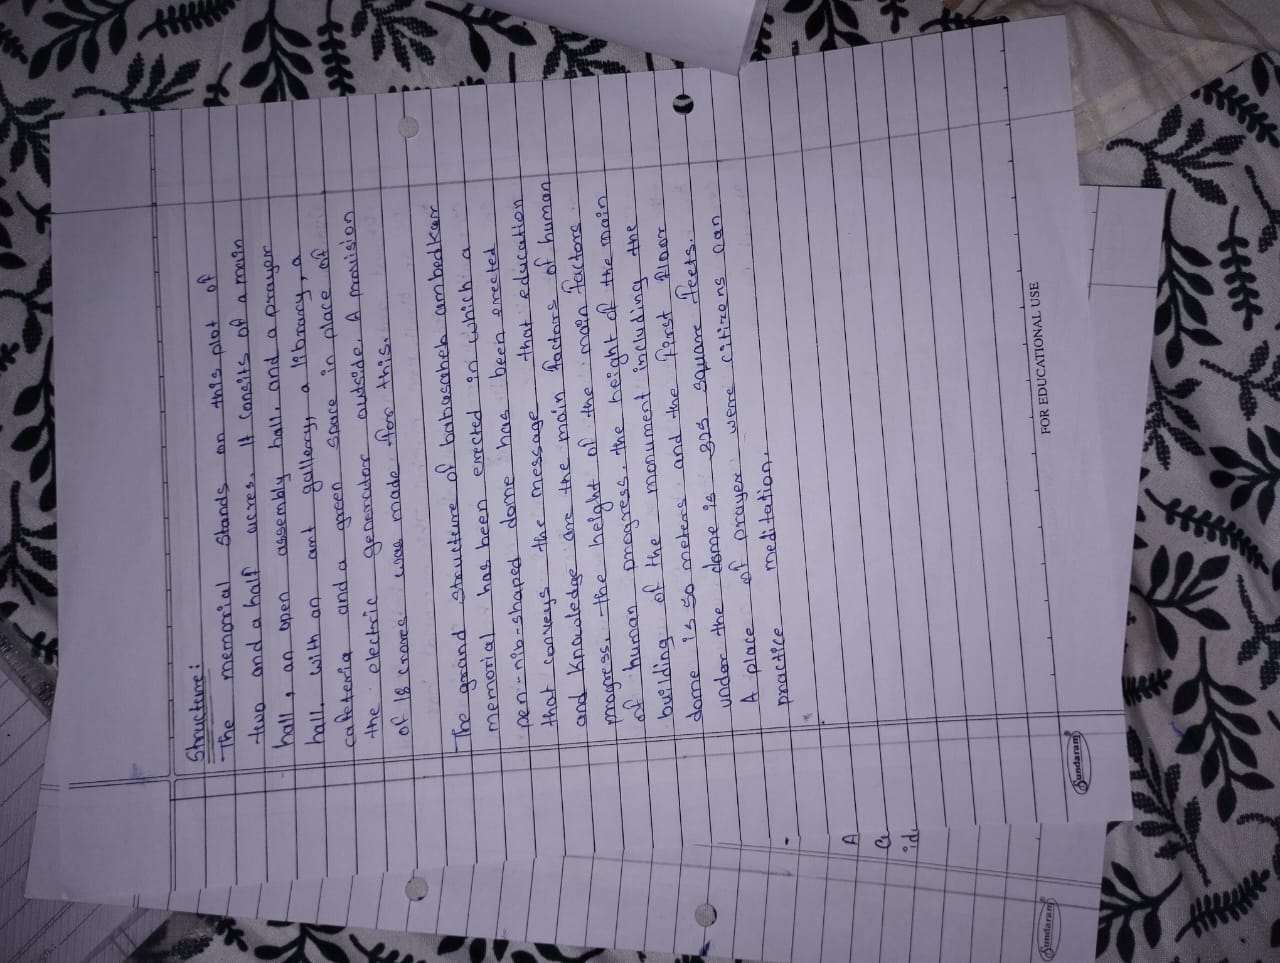 Structure:
The memorial stands on this plot of
two and a half acres. It consits of a main
hall, an open assembly hall, and a prayer
hall. with an art gallery, a library, a
cafeteria and a green space in place of
the electric generator outside. A provision
of 18 crores was made for this.
The grand structure of babasaheb ambedkar
memorial has been erected in which a
pen-nib-shaped dome has been erected
that conveys the message that education
and knowledge are the main factors of human
progress. the height of the main factors
of human progress. the height of the main
building of the monument including the
dome is 50 meters and the first floor
under the dome is 325 square feets.
A place of prayer were citizens can
practice meditation.
A
id
FOR EDUCATIONAL USE
Sundaram
Sundaram